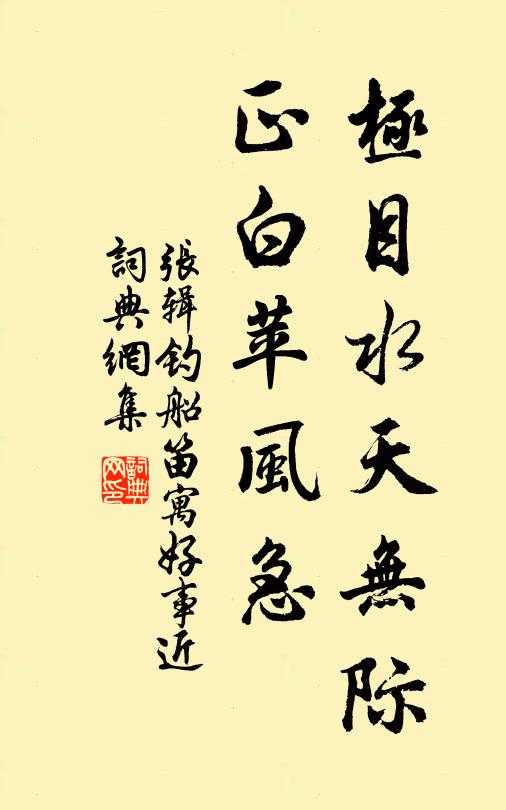 極目水天無际
正白苹風急
張辑钓船笛寓好事近
詞典網集
詞典
网印